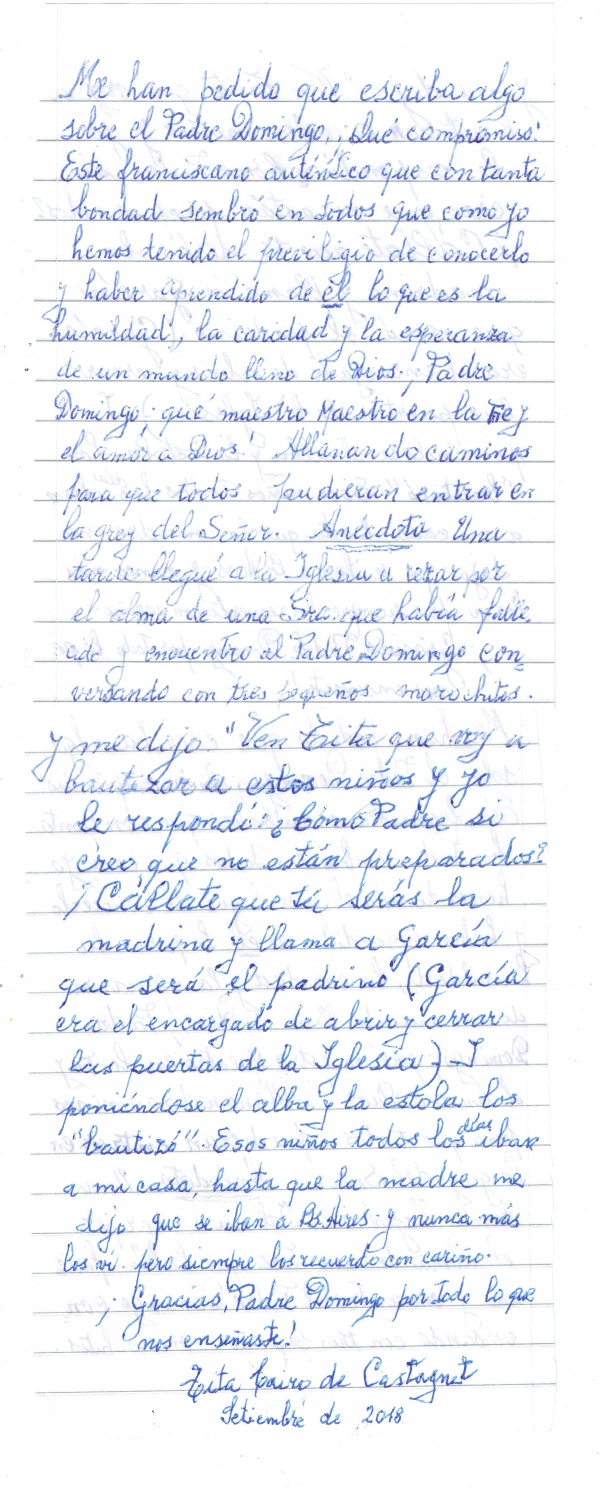 Me han pedido que escriba algo
sobre el Padre Domingo, ¡Qué compromiso!
Este franciscano auténtico que con tanta
bondad sembró en todos que como yo
hemos tenido el previligio de conocerlo
y haber aprendido de él lo que es la
humildad, la caridad y la esperanza
de un mundo lleno de Dios. ¡Padre
Domingo, qué maestro Maestro en la Fe y
el amór a Dios! Allanando caminos
para que todos pudieran entrar en
la grey del Señor. Anécdota Una
tarde llegué a la Iglesia a rezar por
el alma de una Sra. que había falle
cido y encuentro al Padre Domingo con
versando con tres pequeños morochitos.
y me dijo "Ven Tita que voy a
bautizar a estos niños y yo
le respondí: ¿Cómo Padre si
creo que no están preparados?
¡Cállate que tú serás la
madrina y llama a García
que será el padrino (García
era el encargado de abrir y cerrar
las puertas de la Iglesia) - Y
poniéndose el alba y la estola los
"bautizó". Esos niños todos los días iban
a mi casa, hasta que la madre me
dijo que se iban a Bs. Aires y nunca más
los vi. pero siempre los recuerdo con cariño.
¡Gracias, Padre Domingo por todo lo que
nos enseñaste!
Tita Cairo de Castagnet
Setiembre de 2018